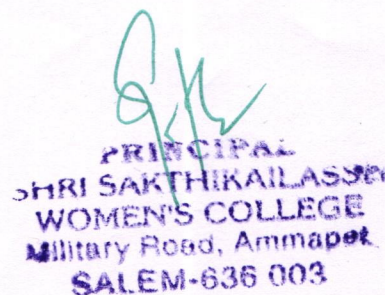 PRINCIPAL
SHRI SAKTHIKAILASSH
WOMEN'S COLLEGE
Military Road, Ammapet
SALEM-636 003